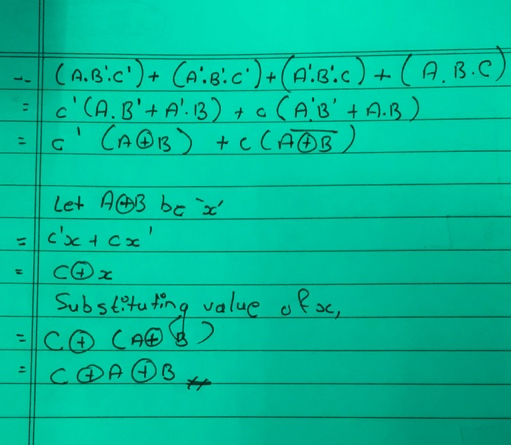 -- (A.B'.C') + (A'.B'.C') + (A'.B'.C) + (A.B.C)
= C' (A.B' + A'.B) + C (A'B' + A.B)
= C' (A⊕B) + C (A̅⊕̅B̅)
Let A⊕B be 'x'
= C'x + Cx'
= C⊕x
Substituting value of x,
= C⊕ (A⊕B)
= C⊕A⊕B